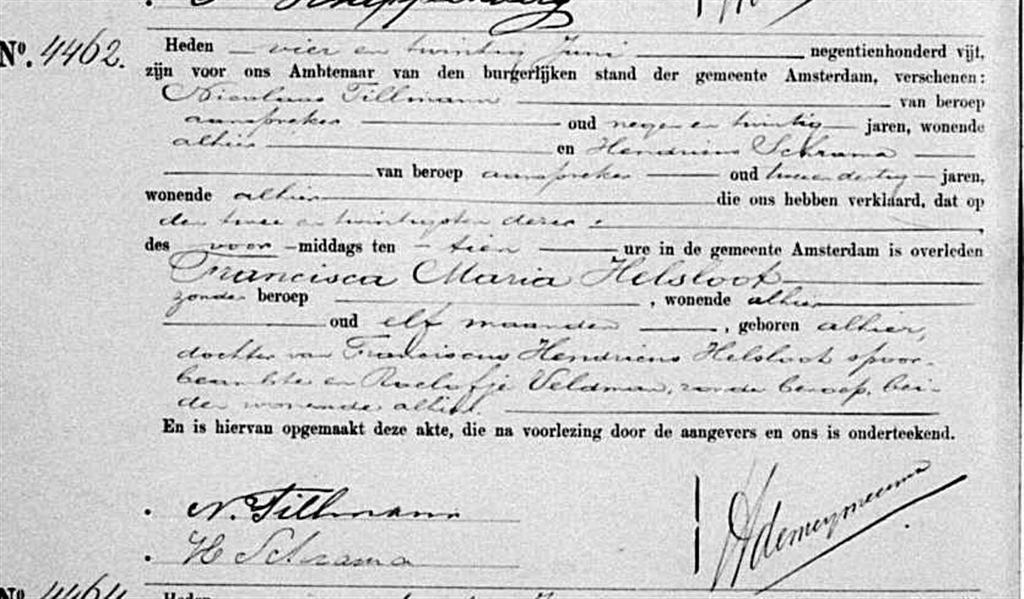 Nº. 4462.
Heden vier en twintig Juni negentienhonderd vijf,
zijn voor ons Ambtenaar van den burgerlijken stand der gemeente Amsterdam, verschenen:
Nicolaas Tillmann van beroep
aanspreker oud negen en twintig jaren, wonende
alhier en Hendricus Schrama
van beroep aanspreker oud twee en dertig jaren,
wonende alhier die ons hebben verklaard, dat op
den twee en twintigsten dezer,
des voor -middags ten tien ure in de gemeente Amsterdam is overleden
Francisca Maria Helsloot
zonder beroep , wonende alhier
oud elf maanden , geboren alhier,
dochter van Franciscus Hendricus Helsloot spoor-
beambte en Roelofje Veldman, zonder beroep, bei-
den wonende alhier.
En is hiervan opgemaakt deze akte, die na voorlezing door de aangevers en ons is onderteekend.
N. Tillmann
H Schrama
Nº. 4464
Heden